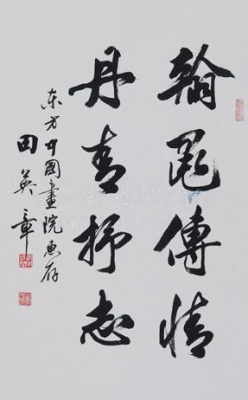 翰墨傳情
丹青抒志
东方中國畫院惠存
田英章